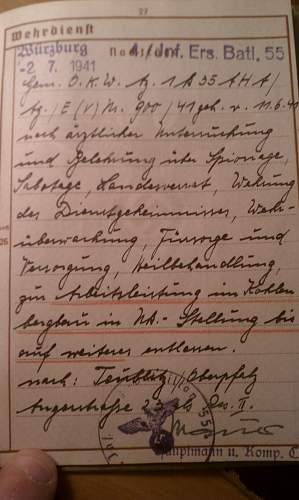 27
Wehrdienst
Würzburg Nach 4./Inf. Ers. Batl. 55
-2. 7. 1941
Gem. O.K.W. Az. 1 d 35 AHA/
Ag./E (V) Nr. 900/41 geh. v. 11.6.41
nach ärztlicher Untersuchung
und Belehrung über Spionage,
Sabotage, Landesverrat, Wahrung
des Dienstgeheimnisses, Wehr-
überwachung, Fürsorge und
Versorgung, Heilbehandlung,
zur Arbeitsleistung im Kohlen
bergbau in UK.-Stellung bis
auf weiteres entlassen.
nach: Teublitz i/ Oberpfalz
als Res. II.
Hauptmann u. Komp.